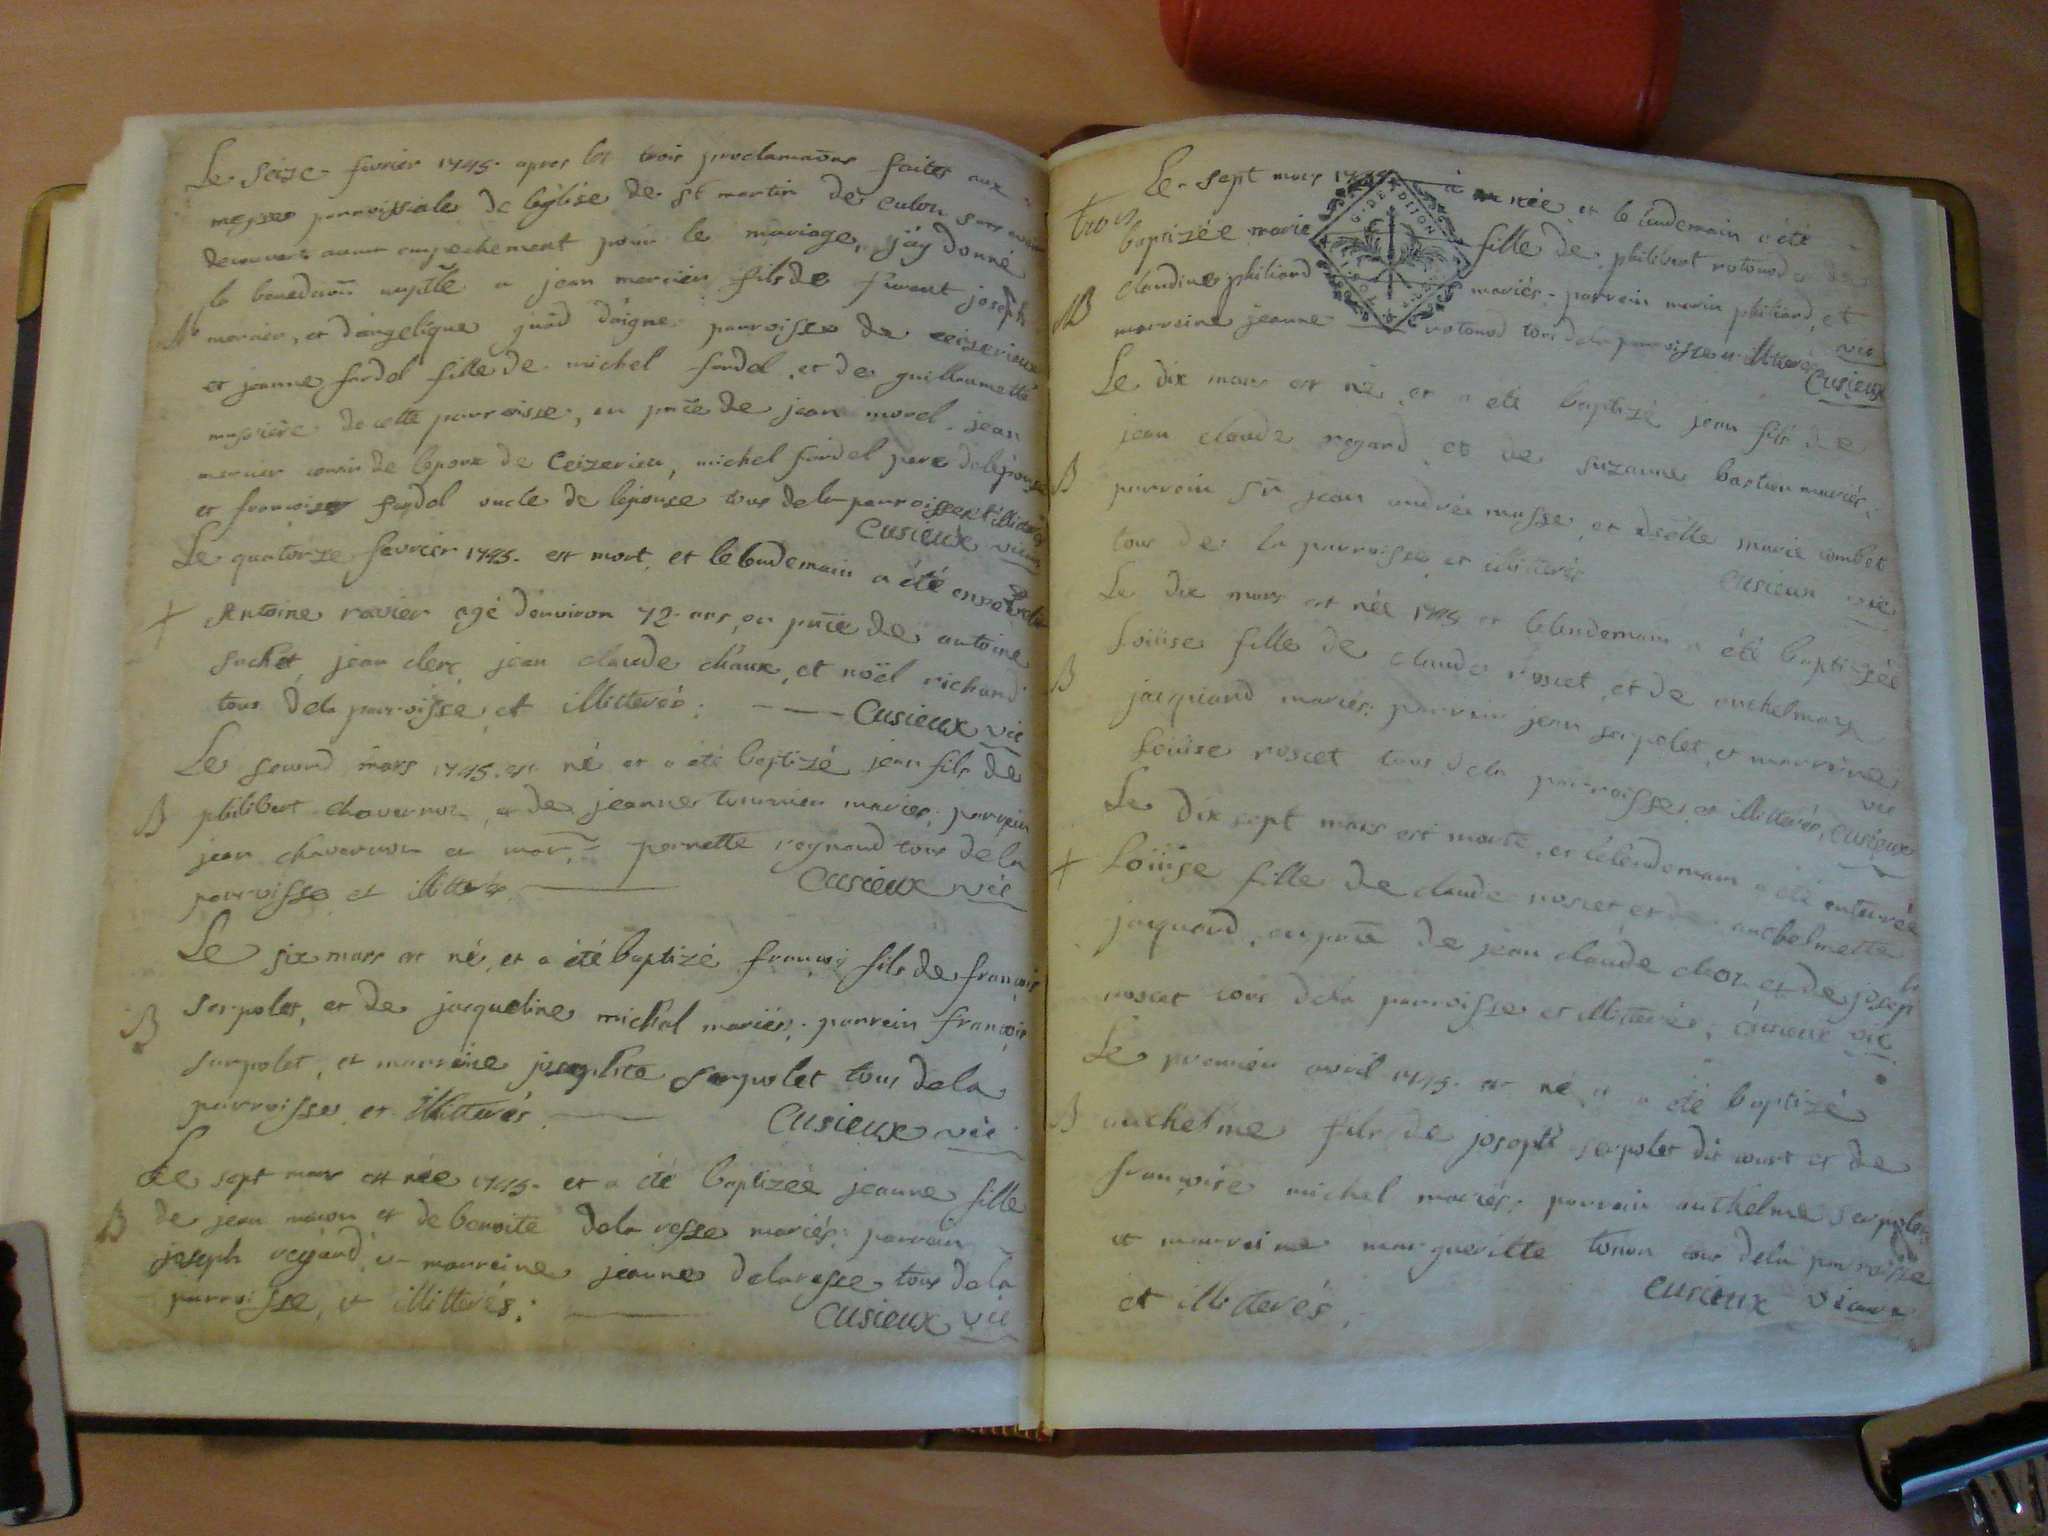 Le seize fevrier 1745. apres les trois proclamaons faites aux
messes parroissiale de l'église de st martin de culon sans avoir
decouvert aucun empechement pour le mariage, j'ay donné
la benediction nuptle a jean mercier fils de furent joseph
M mercier, et d'angelique parroisse de ceizerieux
et jeanne fardel fille de michel fardel, et de guillaumette
de cette parroisse, en pnce de jean morel, jean
mercier cousin de lepoux de Ceizerieu, michel fardel pere de lepouse
et francois fardel oncle de lepouse tous de la parroisse et illiterés
Cusieux vicaire
Le quatorze fevrier 1745. est mort, et le lendemain a été enseveli
+ Antoine ravier agé d'environ 72 ans, en pnce de antoine
suchet, jean clerc, jean claude chaux, et noël richard
tous de la parroisse, et illitterés: Cusieux vic
Le second mars 1745. est né et a été baptizé jean fils de
B philibert chavernon, et de jeanne mariés; parrein
jean chavernon et mar: pernette reynaud tous de la
parroisse et illitterés. Cusieux vic
Le six mars est né, et a été baptizé françois fils de françois
B serpolet, et de jacqueline michal mariés; parrein françois
serpolet, et marreine josephte serpolet tous de la
parroisse et illitterés. Cusieux vic
Le sept mars est née 1745. et a été baptizée jeanne fille
B de jean et de benoite dela resse mariés; parrain
joseph regard, et marreine jeanne delaresse tous de la
parroisse, et illitterés: Cusieux vic
Le sept mars 1745 à née et le lendemain a été
trois
baptizée marie fille de philibert rotonod et de
G. DE DIJON
B claudine philiard mariés. parrein marin philiard, et
marreine jeanne rotonod tous de la parroisse et illitterés vic
Cusieux
Le dix mars est né, et a été baptizé jean fils de
jean claude regard et de suzanne bastian mariés,
B parrein sr jean andré masse, et dselle marie combet
tous de la parroisse, et illitterés Cusieux vic
Le dix mars est née 1745 et le lendemain a été baptizée
Loüise fille de claude roset, et de anthelmaz
B jacquand mariés; parrein jean serpolet, et marreine
Loüise roset tous de la parroisse, et illitterés, Cusieux vic
Le dix sept mars est morte, et le lendemain a été enterrée
+ Loüise fille de claude roset et de anthelmette
jacquand, en pnce de jean claude choz, et de joseph
roset tous de la parroisse et illitterés; Cusieux vic.
Le premier avril 1745. est né et a été baptizé
B anthelme fils de joseph serpolet dit court et de
françoise michel mariés; parrain anthelme serpolet
et marreine margueritte tonon tous de la parroisse
et illitterés. Cusieux vicaire